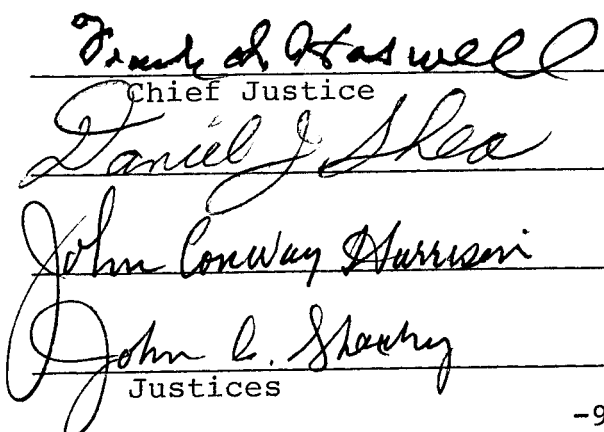 Frank I. Haswell
Chief Justice
Daniel J. Shea
John Conway Harrison
John C. Sheehy
Justices
-9